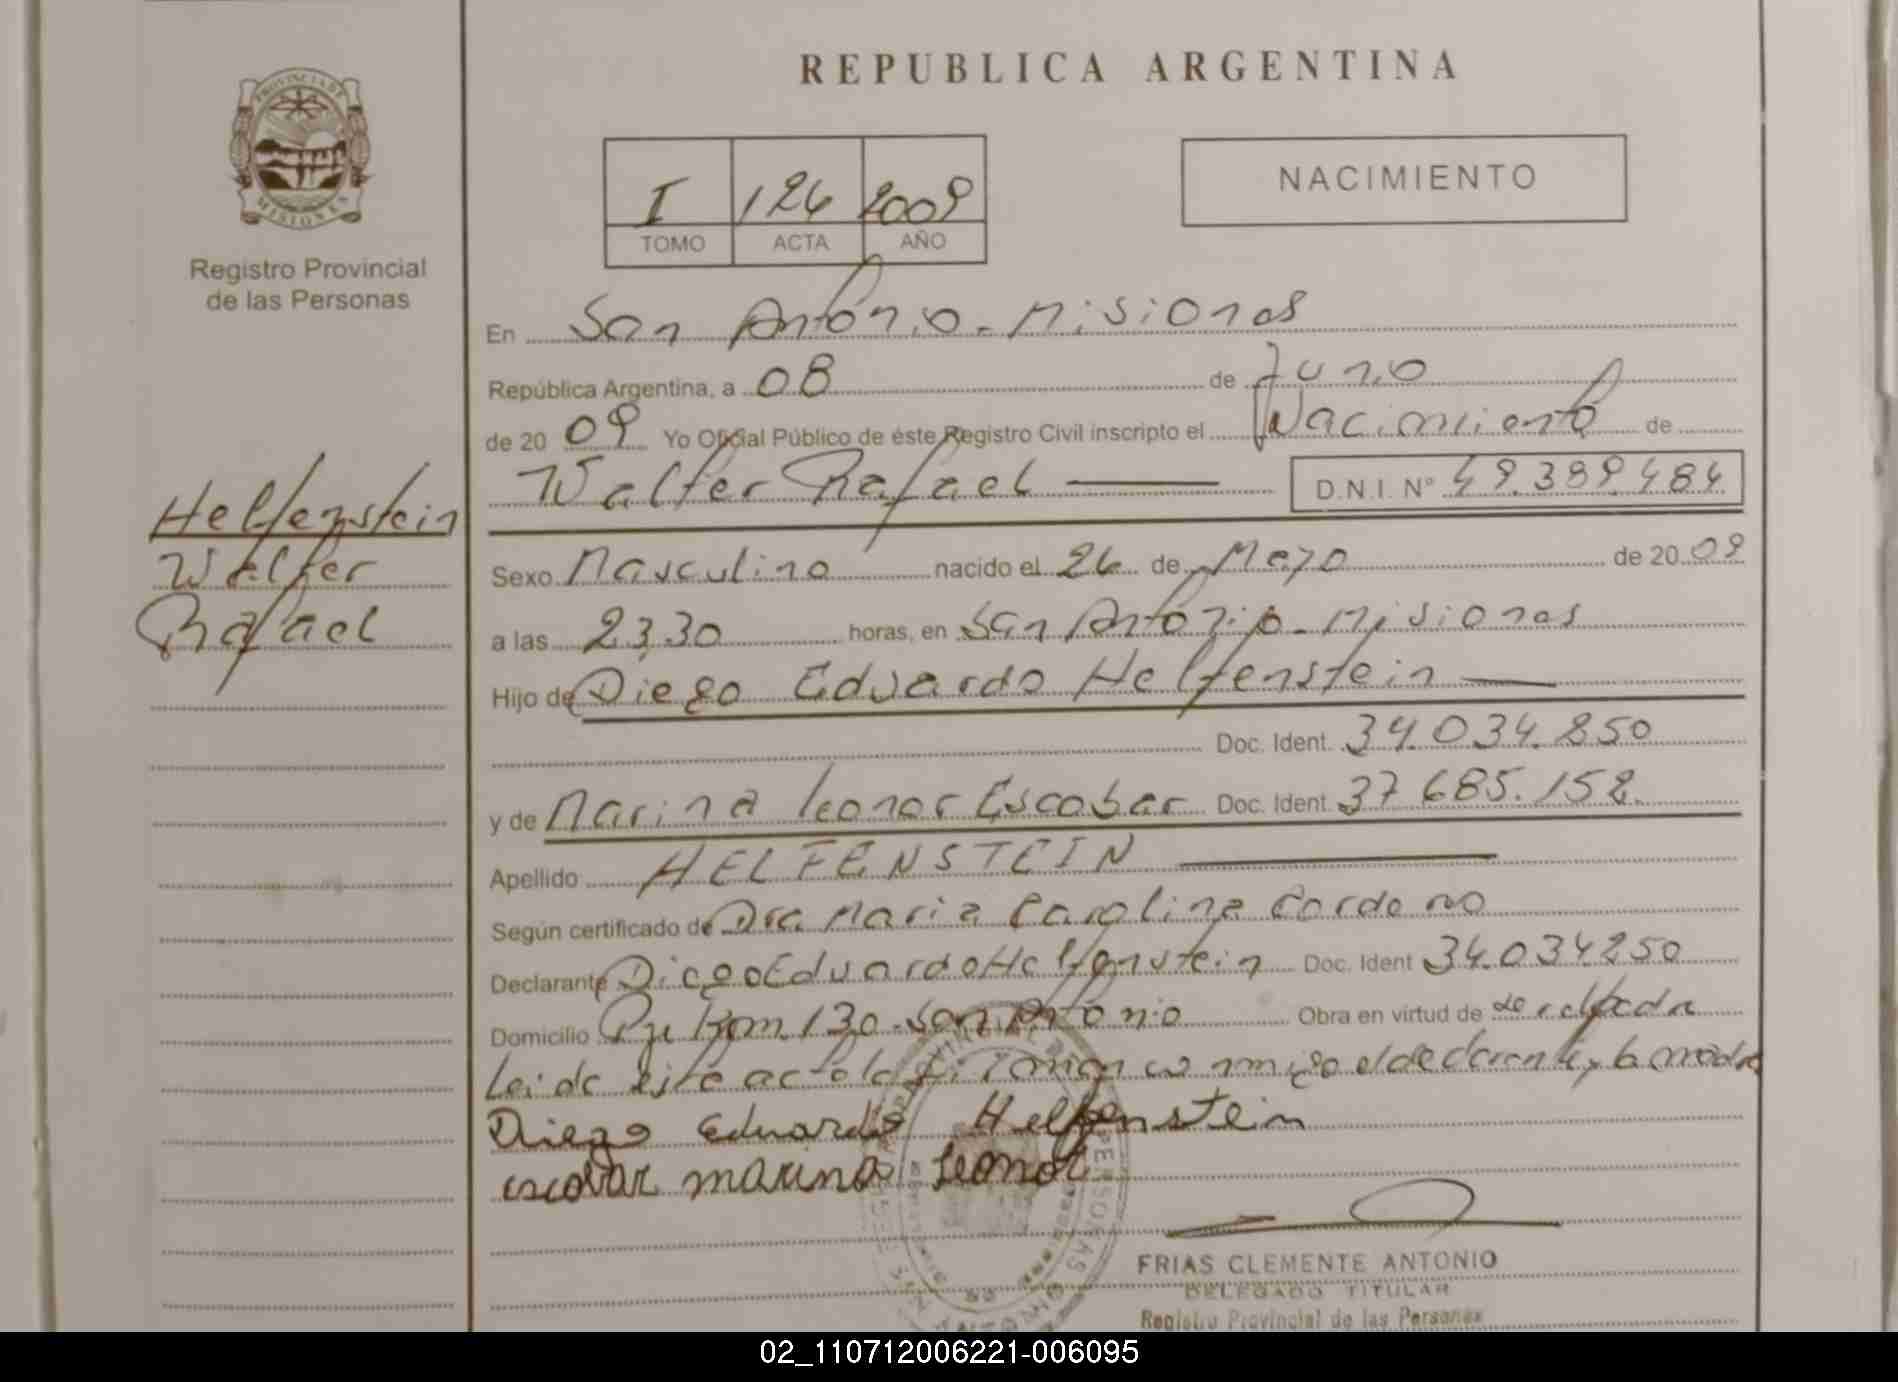 REPUBLICA ARGENTINA
PROVINCIA DE
MISIONES
Registro Provincial
de las Personas
I 126 2009
TOMO ACTA AÑO
NACIMIENTO
En San Antonio - Misiones
República Argentina, a 08 de Junio
de 20 09 Yo Oficial Público de éste Registro Civil inscripto el Nacimiento de
Walter Rafael D.N.I. Nº 49.389.484
Helfenstein
Walter
Rafael
Sexo Masculino nacido el 26 de Mayo de 20 09
a las 23,30 horas, en San Antonio - Misiones
Hijo de Diego Eduardo Helfenstein
Doc. Ident. 34.034.850
y de Marina Leonor Escobar Doc. Ident. 37 685.158.
Apellido HELFENSTEIN
Según certificado de Dra. Maria Carolina
Declarante Diego Eduardo Helfenstein Doc. Ident 34.034850
Domicilio Km. 130 - San Antonio Obra en virtud de
Leida el declarante y la madre
Diego Eduardo Helfenstein
escobar marina leonor
FRIAS CLEMENTE ANTONIO
DELEGADO TITULAR
Registro Provincial de las Personas
02_110712006221-006095